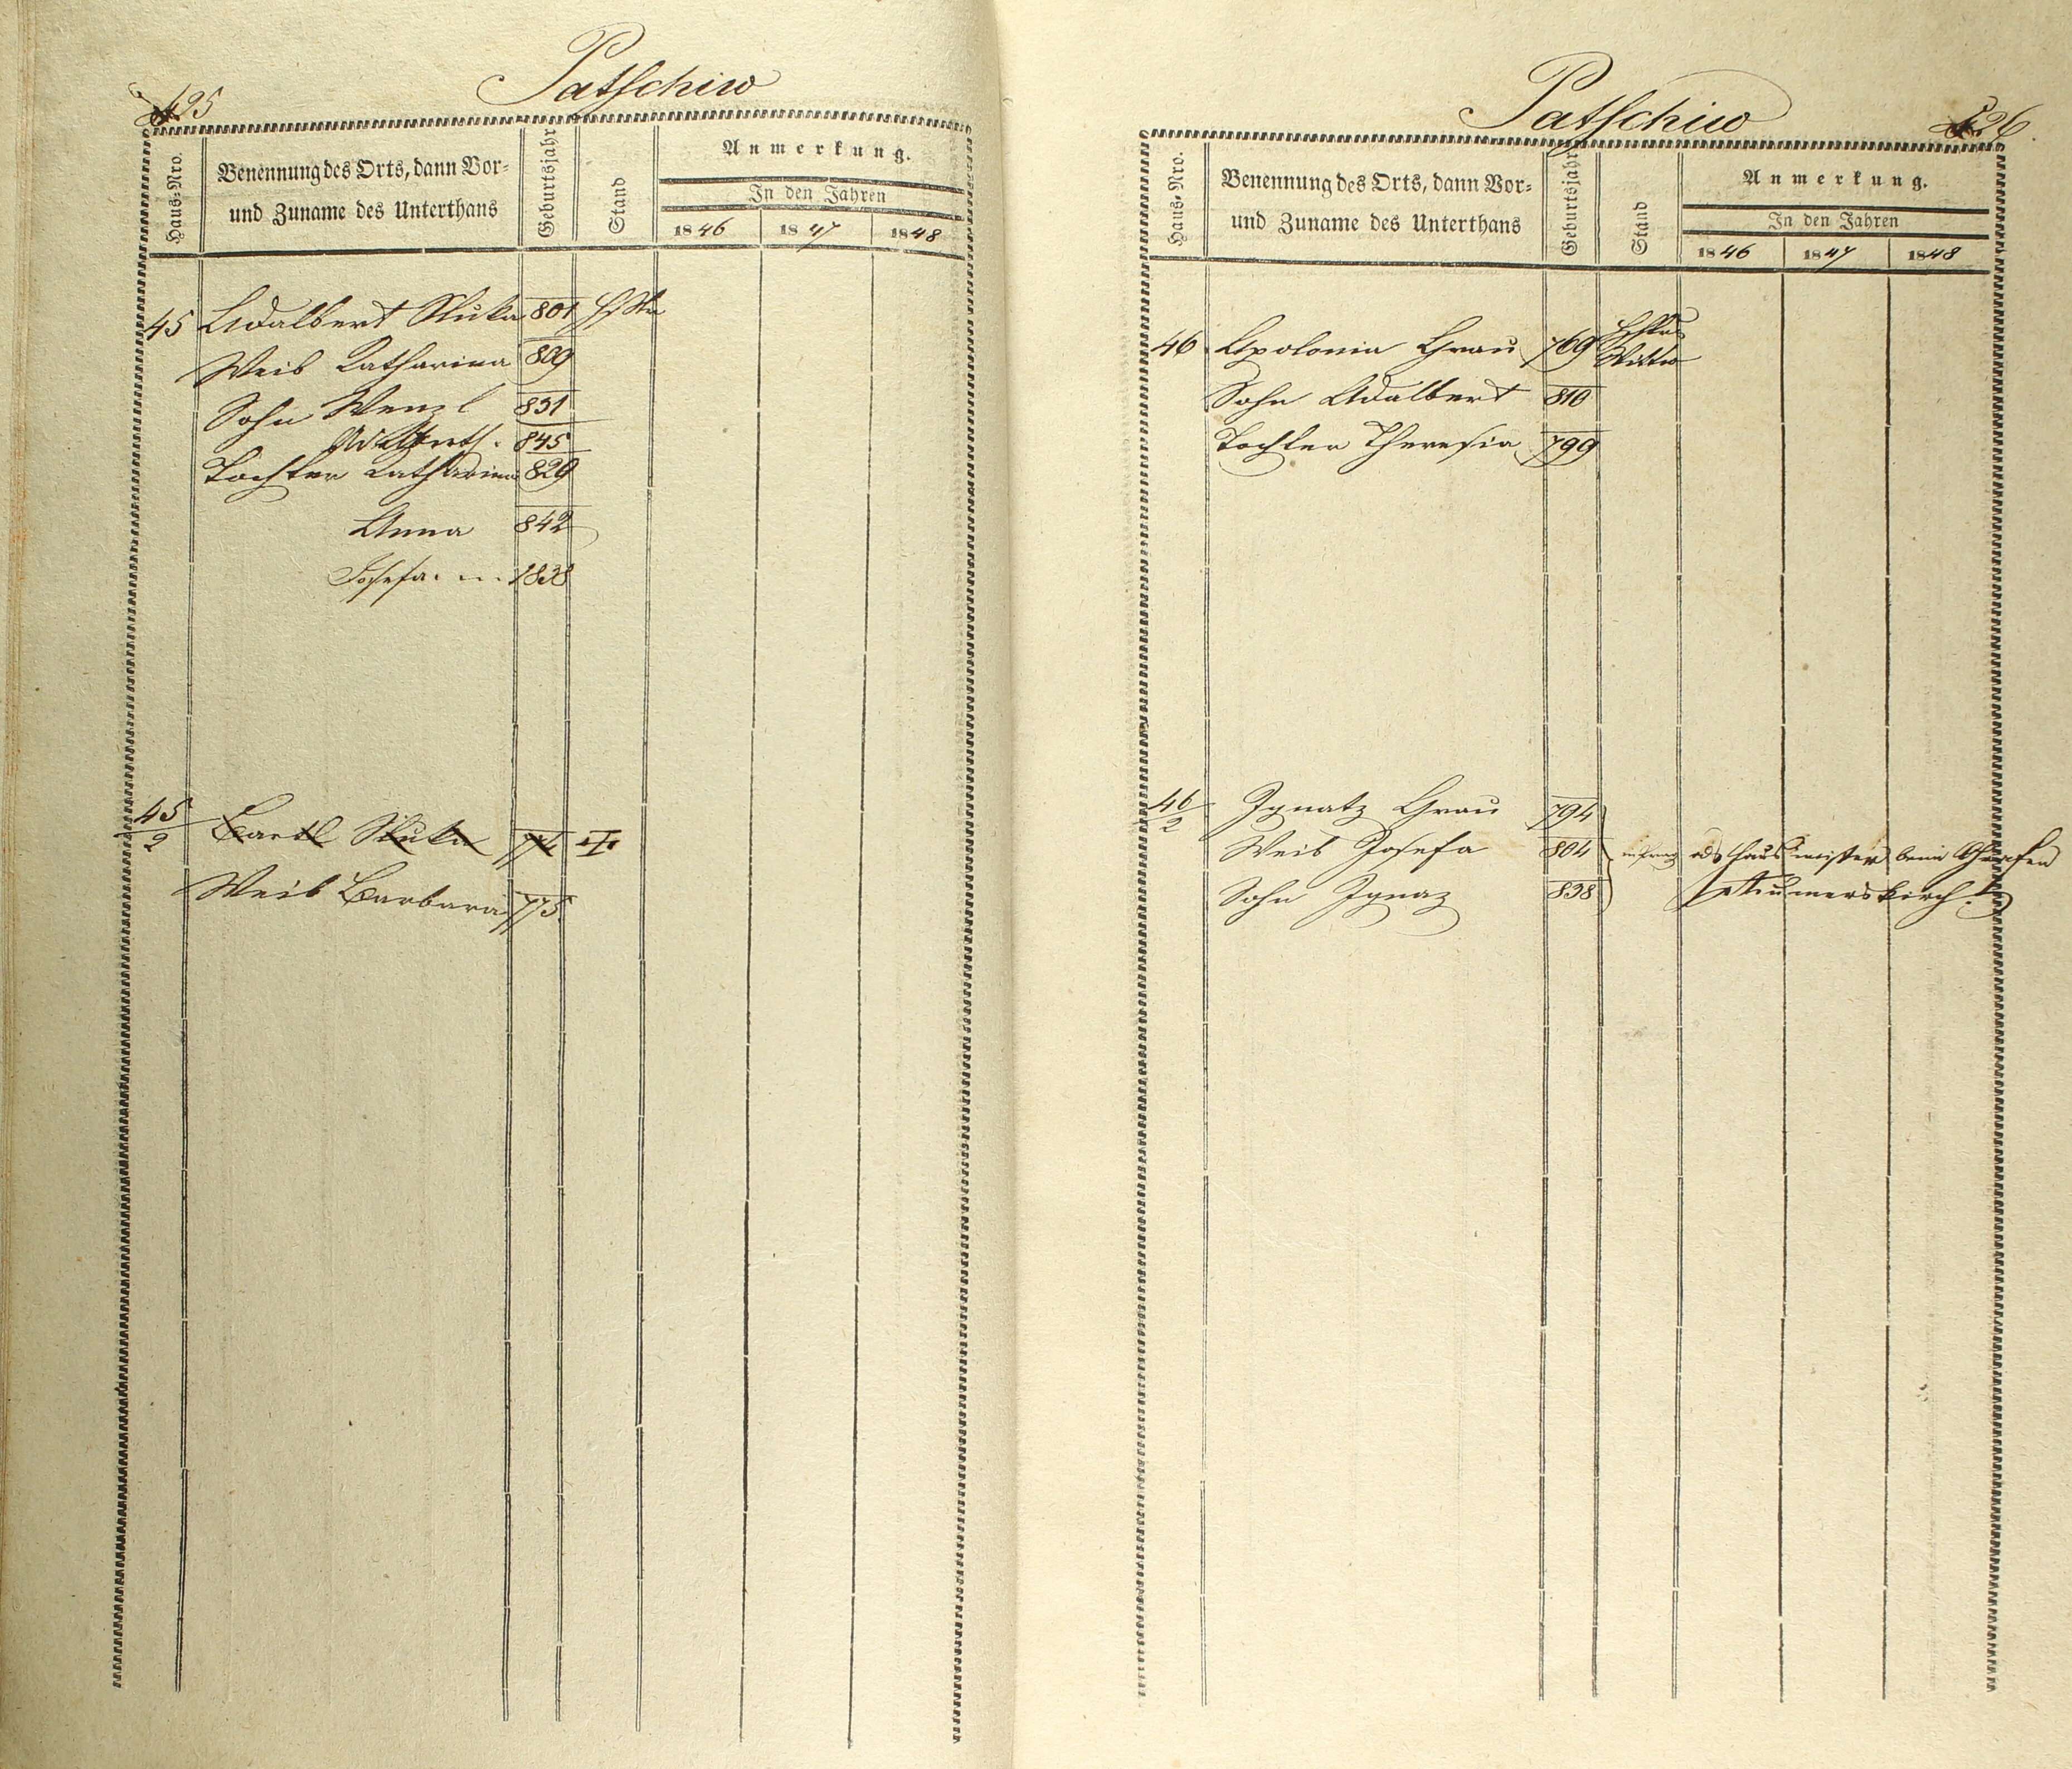 Patschiw
425
Haus-Nro.
Benennung des Orts, dann Vor-
und Zuname des Unterthans
Geburtsjahr
Stand
Anmerkung.
In den Jahren
1846 1847 1848
45 Adalbert Stuka 801
Weib Katharina 809
Sohn Wenzl 831
845
Tochter Katharina 829
Anna 842
Josefa 1838
45/2 Bartl Stuka 774
Weib Barbara 775
Patschiw
426
Haus-Nro.
Benennung des Orts, dann Vor-
und Zuname des Unterthans
Geburtsjahr
Stand
Anmerkung.
In den Jahren
1846 1847 1848
46 Apolonia Grau 769 Wittw
Sohn Adalbert 810
Tochter Theresia 799
46/2 Ignatz Grau 794
Weib Josefa 804 in Prag als Hausmeister beim Grafen
Sohn Ignaz 838